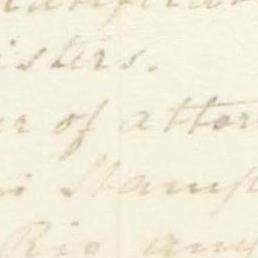 isters.
er of attor
i Stamp
Rio any